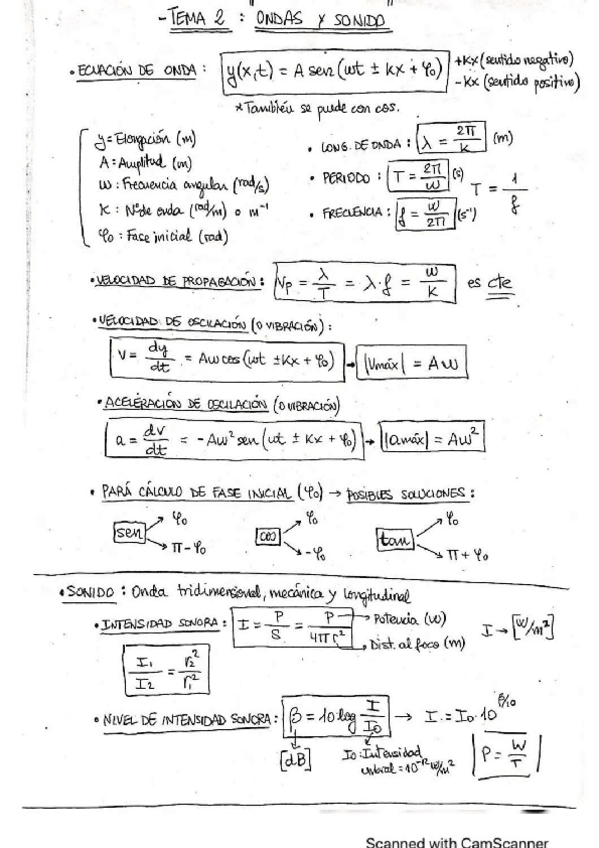 - TEMA 2 : ONDAS Y SONIDO
• ECUACIÓN DE ONDA : y(x,t) = A sen (ωt ± kx + φ₀) +Kx (sentido negativo)
-Kx (sentido positivo)
*También se puede con cos.
y = Elongación (m)
A : Amplitud (m)
ω : Frecuencia angular (rad/s)
K : Nº de onda (rad/m) o m⁻¹
φ₀ : Fase inicial (rad)
• LONG. DE ONDA : λ = 2π/k (m)
• PERIODO : T = 2π/ω (s) T = 1/f
• FRECUENCIA : f = ω/2π (s⁻¹)
• VELOCIDAD DE PROPAGACIÓN : Vp = λ/T = λ·f = ω/k es cte
• VELOCIDAD DE OSCILACIÓN (O VIBRACIÓN) :
V = dy/dt = Aω cos (ωt ± Kx + φ₀) → |Vmáx| = Aω
• ACELERACIÓN DE OSCILACIÓN (O VIBRACIÓN)
a = dv/dt = -Aω² sen (ωt ± Kx + φ₀) → |amáx| = Aω²
• PARA CÁLCULO DE FASE INICIAL (φ₀) → POSIBLES SOLUCIONES :
sen φ₀ π-φ₀
cos φ₀ -φ₀
tan φ₀ π+φ₀
• SONIDO : Onda tridimensional, mecánica y longitudinal
• INTENSIDAD SONORA : I = P/S = P/4πr² → Potencia (W) I → [W/m²]
Dist. al foco (m)
I₁/I₂ = r₂²/r₁²
• NIVEL DE INTENSIDAD SONORA : β = 10 log I/I₀ → I = I₀·10^β/10
[dB] I₀ : Intensidad
umbral = 10⁻¹² W/m²
P = W/T
Scanned with CamScanner